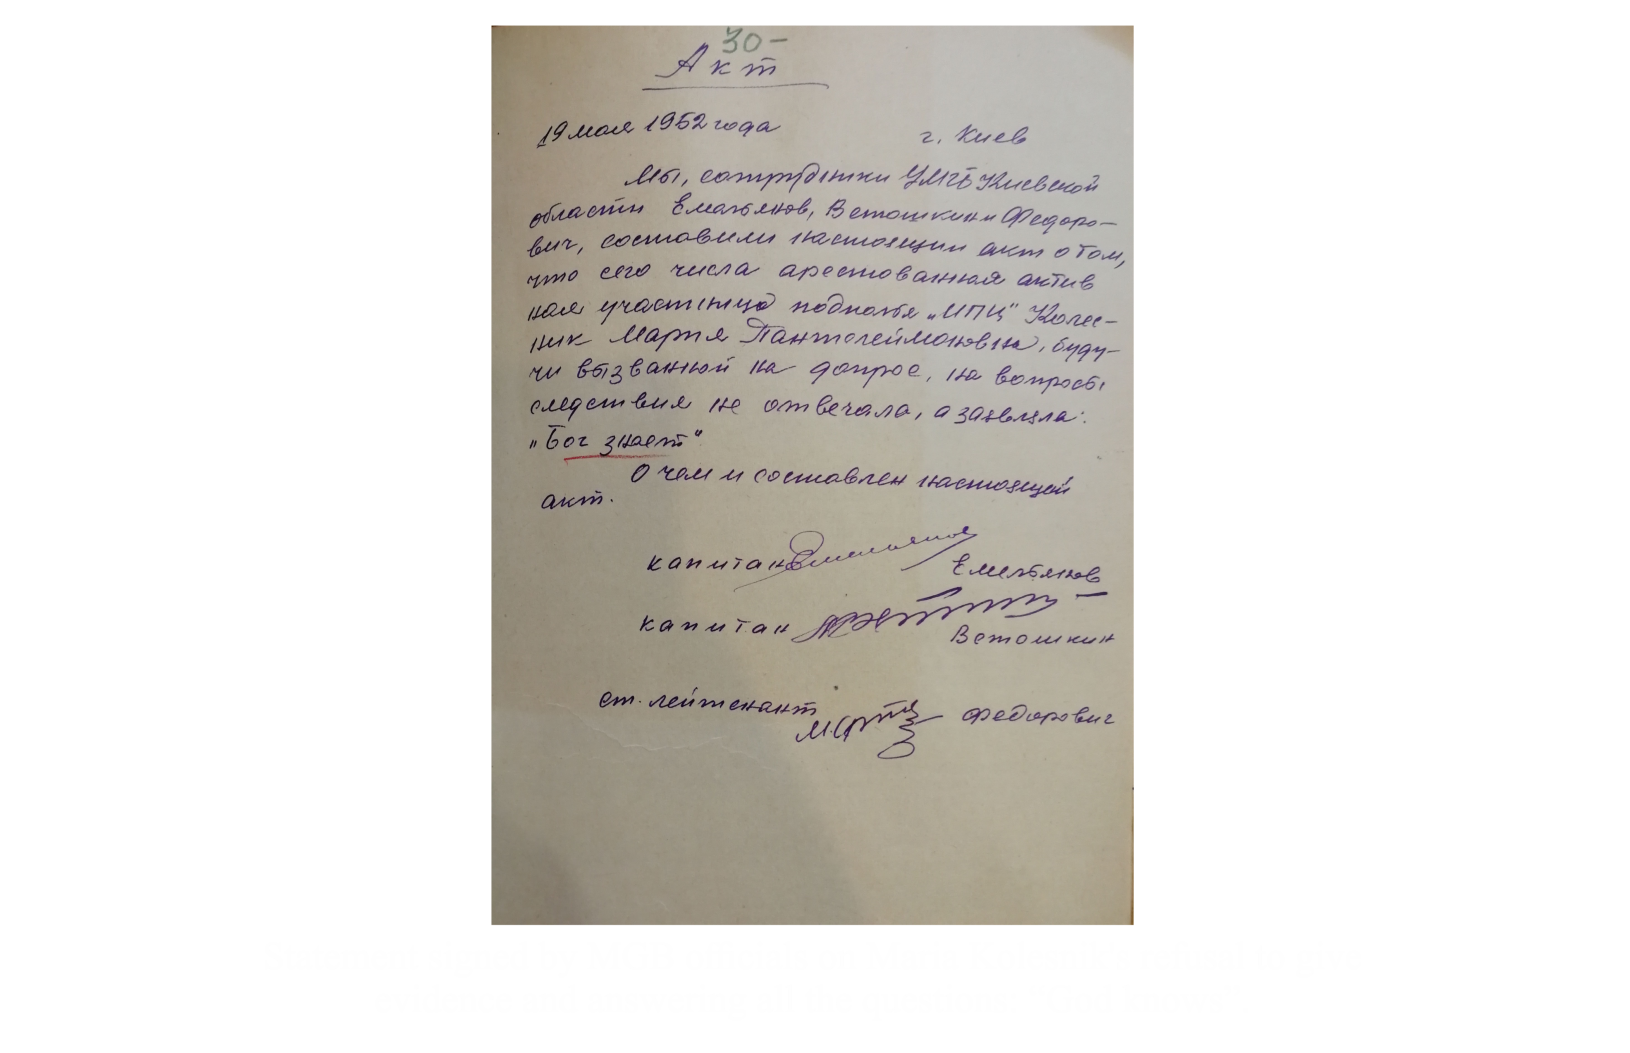 30-
Акт
19 мая 1952 года г. Киев
Мы, сотрудники УМГБ Киевской
области Емельянов, Ветошкин и Федоро-
вич, составили настоящий акт о том,
что сего числа арестованная актив
ная участница подполья „ИПЦ" Колес-
ник Мария Пантелеймоновна, буду-
чи вызванной на допрос, на вопросы
следствия не отвечала, а заявляла:
„Бог знает"
О чем и составлен настоящий
акт.
капитан Емельянов
капитан Ветошкин
ст. лейтенант Федорович